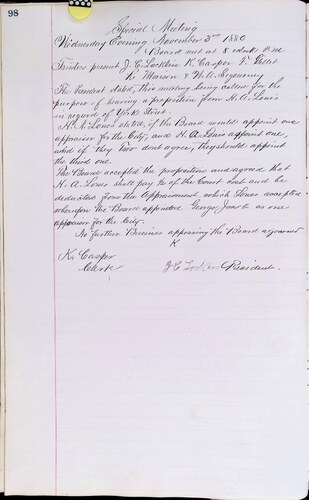 98
Special Meeting
Wednesday Evening November 3rd 1880
Board met at 8 o'clock P.M.
Trustees present J. C. Locklin K. Casper F. Gillet
N. Marcen & W. W. Sigourney
The President stated, this meeting being called for the
purpose of hearing a proposition from H. A. Lewis
in regard of York Street.
H. A. Lewis stated, if the Board would appoint one
appraiser for the City, and H. A. Lewis appoint one,
and if they two dont agree, they should appoint
the third one.
The Board accepted the proposition and agreed that
H. A. Lewis shall pay ½ of the Court cost and be
deducted from the Appraisement which Lewis accepted
whereupon the Board appointed George Jacobs as one
appraiser for the City.
No further Business appearing the Board adjourned
K
K. Casper
Clerk
J C Locklin President.